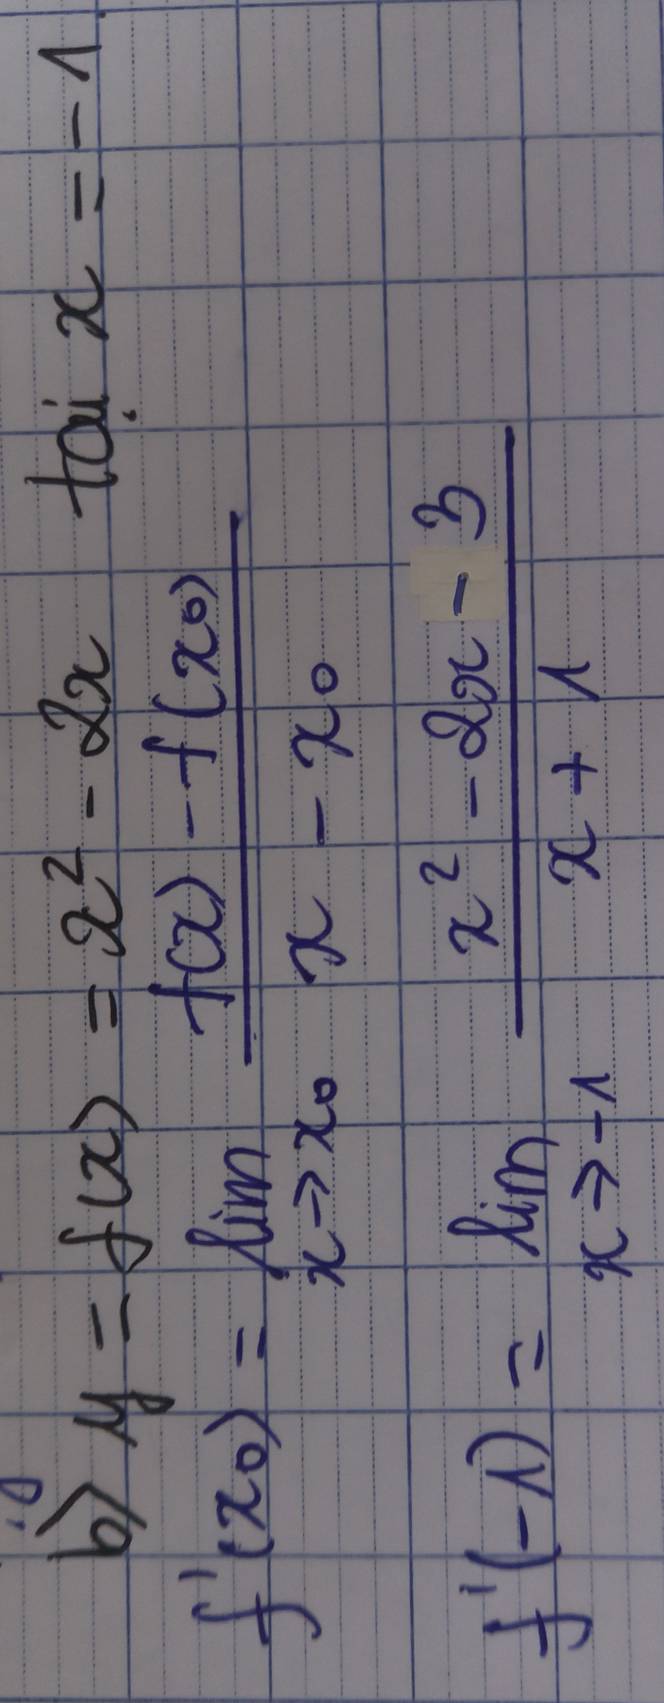 b) y = f(x) = x² - 2x tại x = -1
f'(x₀) = lim x→x₀ (f(x) - f(x₀)) / (x - x₀)
f'(-1) = lim x→-1 (x² - 2x - 3) / (x + 1)